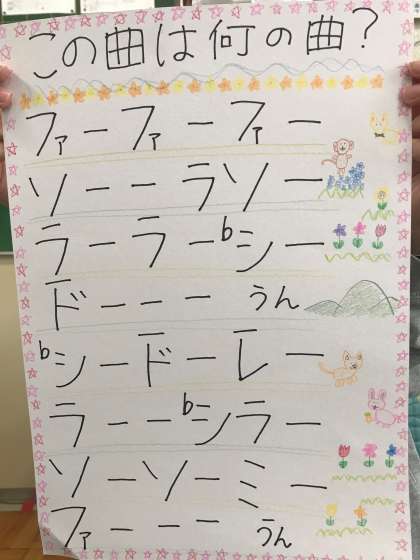 この曲は何の曲?
ファーファーファー
ソーーラソー
ラーラー♭シー
ドーーー うん
♭シードーレー
ラーー♭シラー
ソーソーミー
ファーーー うん